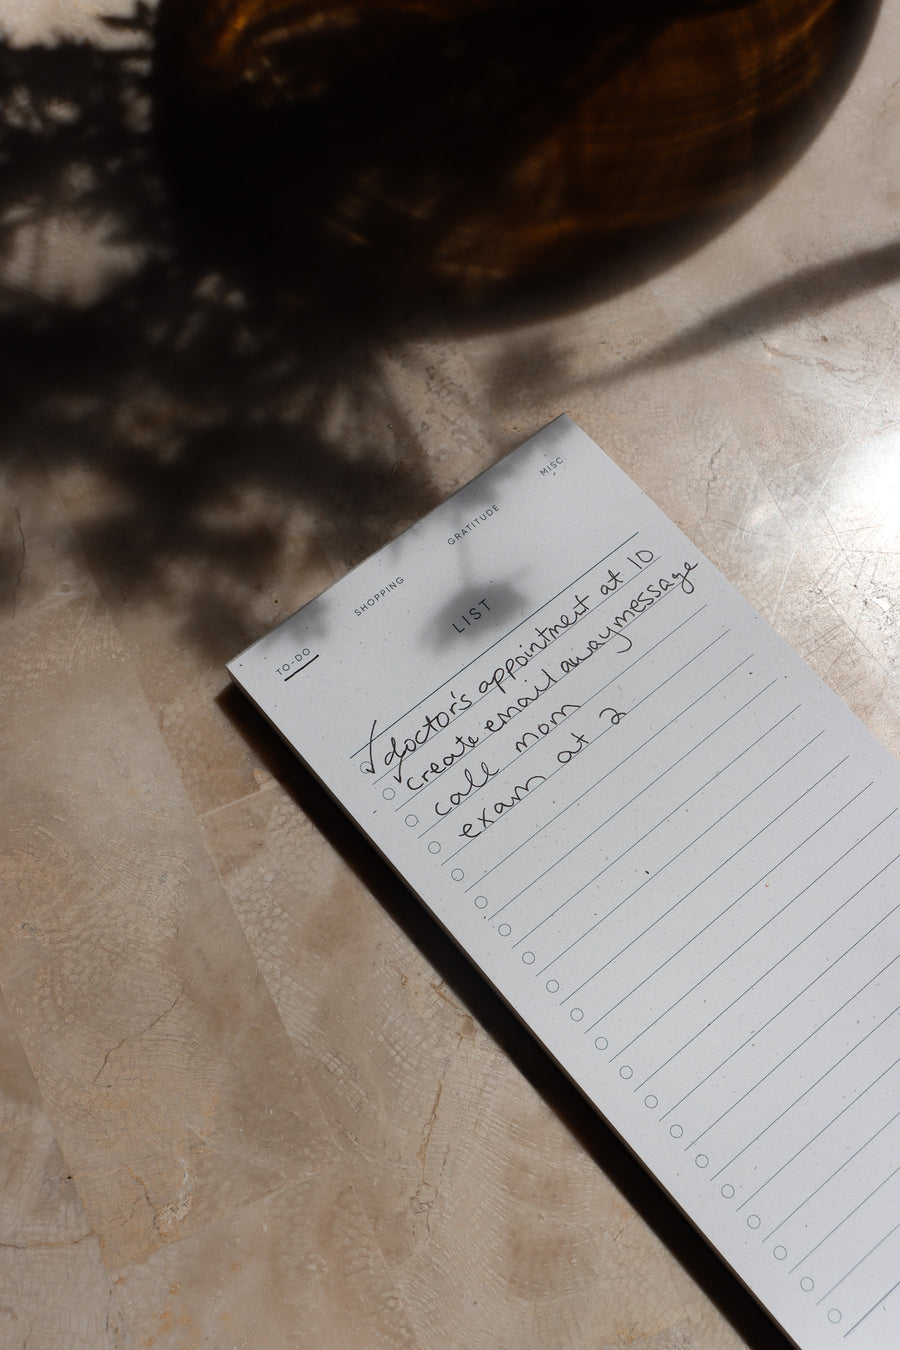 TO-DO SHOPPING GRATITUDE MISC.
LIST
doctor's appointment at 10
create email away message
call mom
exam at 2